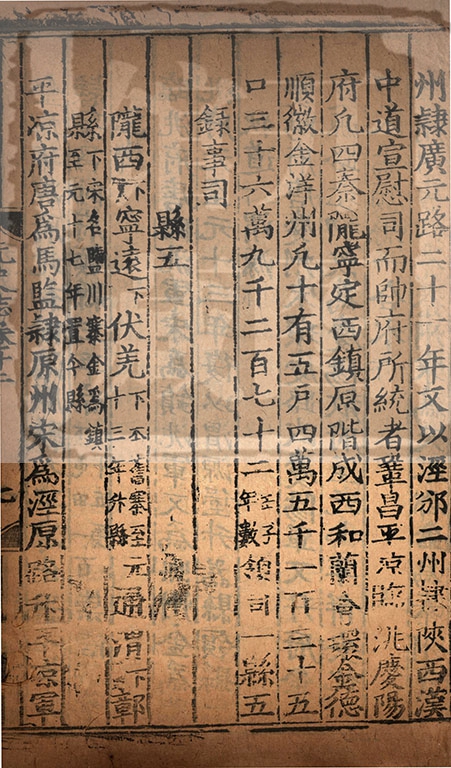 州隷廣元路二十一年又以涇邠二州隷陜西漢
中道宣慰司而帥府所統者鞏昌平凉臨洮慶陽
府凡四秦隴寧定西鎮原階成西和蘭會環金德
順徽金洋州凡十有五戸四萬五千一百三十五
口三十六萬九千二百七十二壬子年數領司一縣五
録事司
縣五
隴西下寧遠下伏羌下本舊寨至元十三年升縣通渭下鄣
縣下宋名鹽川寨金爲鎮至元十七年置今縣
平凉府唐爲馬監隷原州宋爲涇原路升平凉軍
元史志卷十二